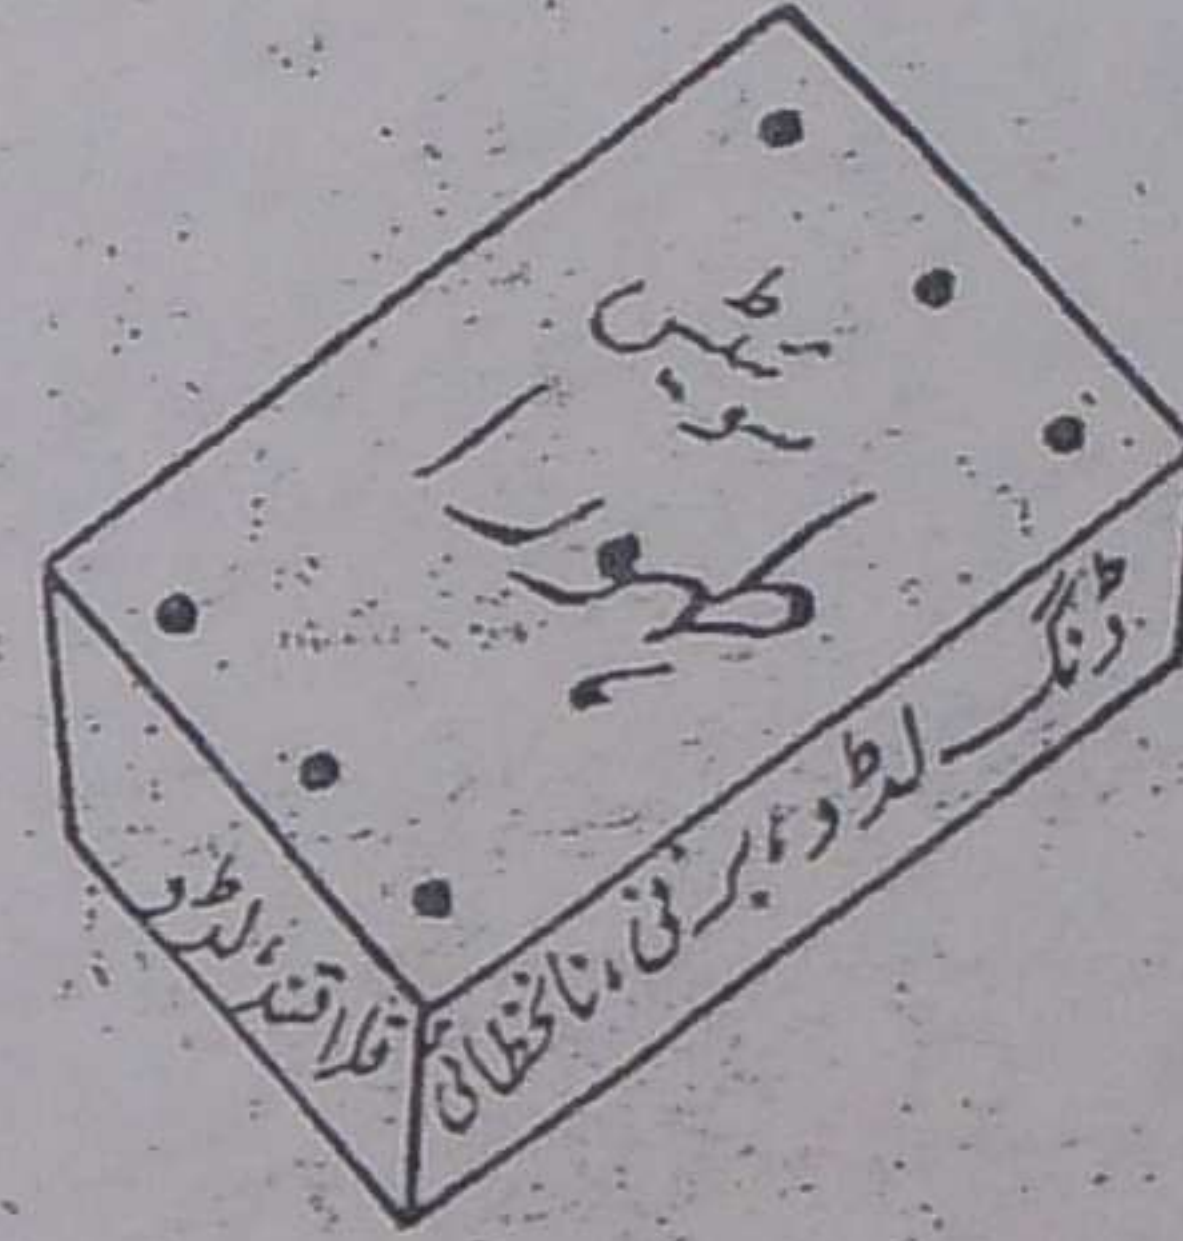 سوئیٹس
ڈنگ لڈو، برفی، نانخطائی
قلاقند، لڈو